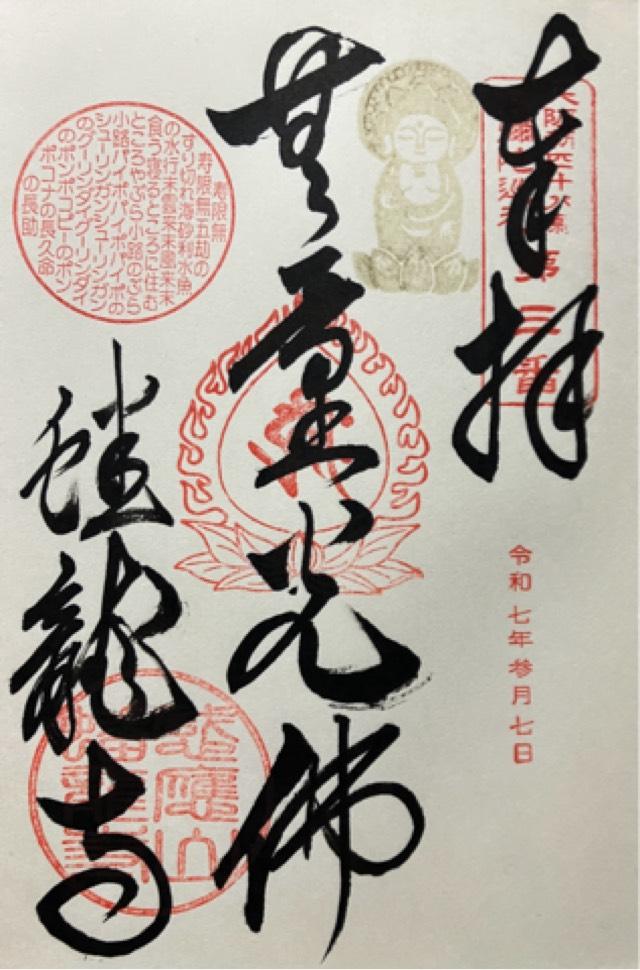 奉拝
第三番
令和七年参月七日
無量光佛
寿限無
寿限無五劫の
すり切れ海砂利水魚
の水行末雲来末風来末
食う寝るところに住む
ところやぶら小路のぶら
小路パイポパイポパイポの
シューリンガンシューリンガン
のグーリンダイグーリンダイ
のポンポコピーのポン
ポコナの長久命
の長助
蟠龍寺